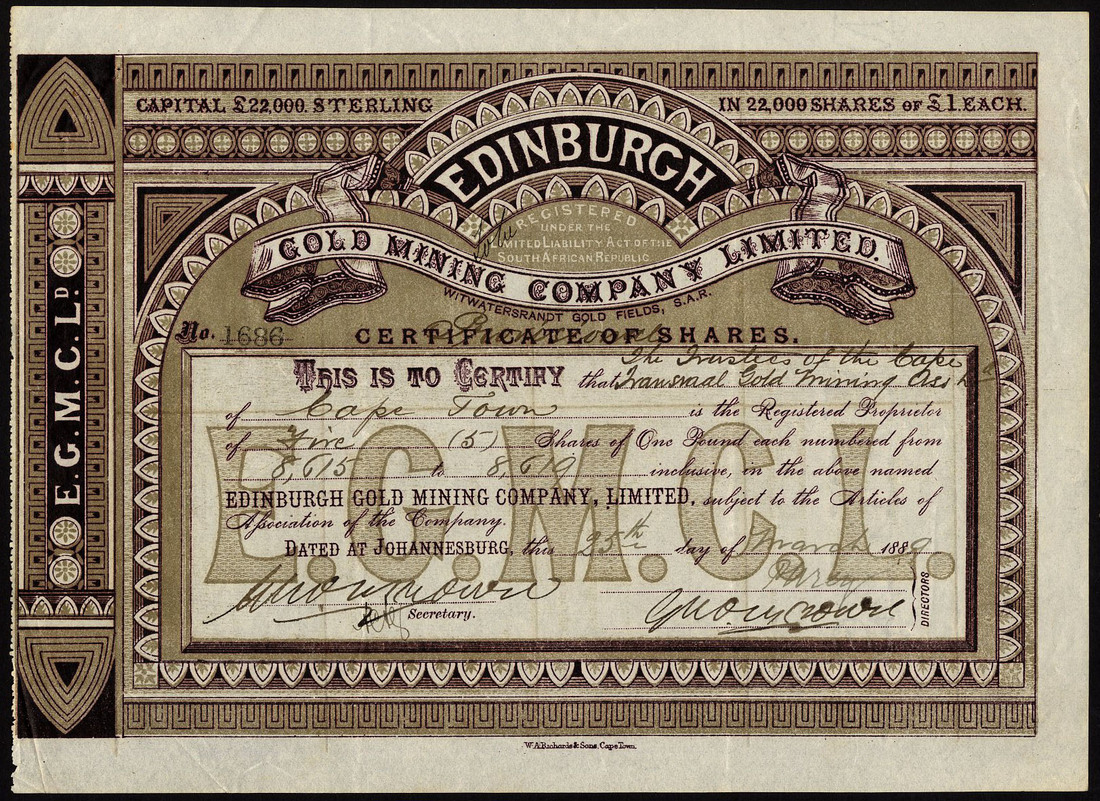 CAPITAL £22,000. STERLING
IN 22,000 SHARES OF £1. EACH.
EDINBURGH
REGISTERED
UNDER THE
LIMITED LIABILITY ACT OF THE
SOUTH AFRICAN REPUBLIC
GOLD MINING COMPANY LIMITED.
WITWATERSRANDT GOLD FIELDS, S.A.R.
No. 1686
CERTIFICATE OF SHARES.
THIS IS TO CERTIFY that The Trustees of the Cape
Transvaal Gold Mining
of Cape Town is the Registered Proprietor
of Five (5) Shares of One Pound each numbered from
8,615 to 8,619 inclusive, in the above named
EDINBURGH GOLD MINING COMPANY, LIMITED, subject to the Articles of
Association of the Company.
DATED AT JOHANNESBURG, this 25th day of March 1889
Secretary.
DIRECTORS
E.G.M.C.L.
E.G.M.C.LD
W.A. Richards & Sons, Cape Town.